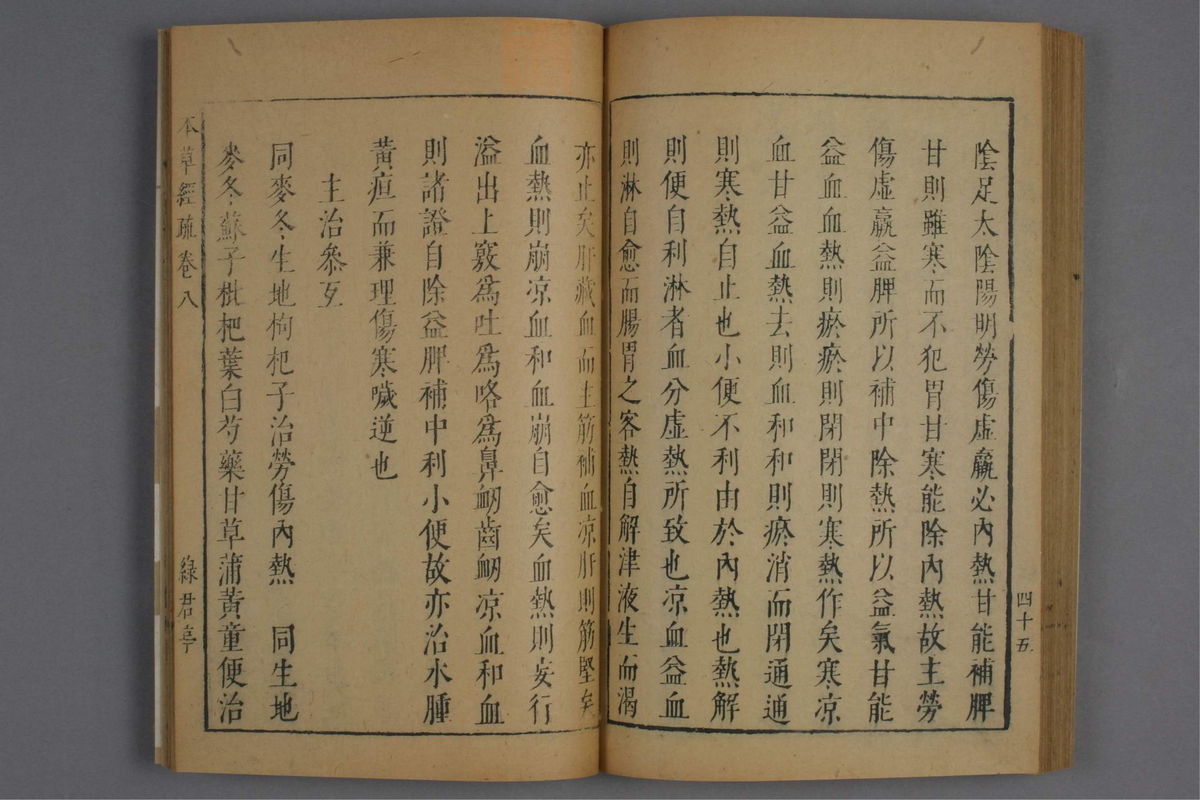 四十五
陰足太陰陽明勞傷虛羸必內熱甘能補脾
甘則雖寒而不犯胃甘寒能除內熱故主勞
傷虛羸益脾所以補中除熱所以益氣甘能
益血血熱則瘀瘀則閉閉則寒熱作矣寒凉
血甘益血熱去則血和和則瘀消而閉通通
則寒熱自止也小便不利由於內熱也熱解
則便自利淋者血分虛熱所致也凉血益血
則淋自愈而腸胃之客熱自解津液生而渴
亦止矣肝藏血而主筋補血凉肝則筋堅矣
血熱則崩凉血和血崩自愈矣血熱則妄行
溢出上竅爲吐爲咯爲鼻衂齒衂凉血和血
則諸證自除益脾補中利小便故亦治水腫
黃疸而兼理傷寒噦逆也
主治叅互
同麥冬生地枸杞子治勞傷內熱　同生地
麥冬蘇子枇杷葉白芍藥甘草蒲黃童便治
本草經疏卷八
綠君亭